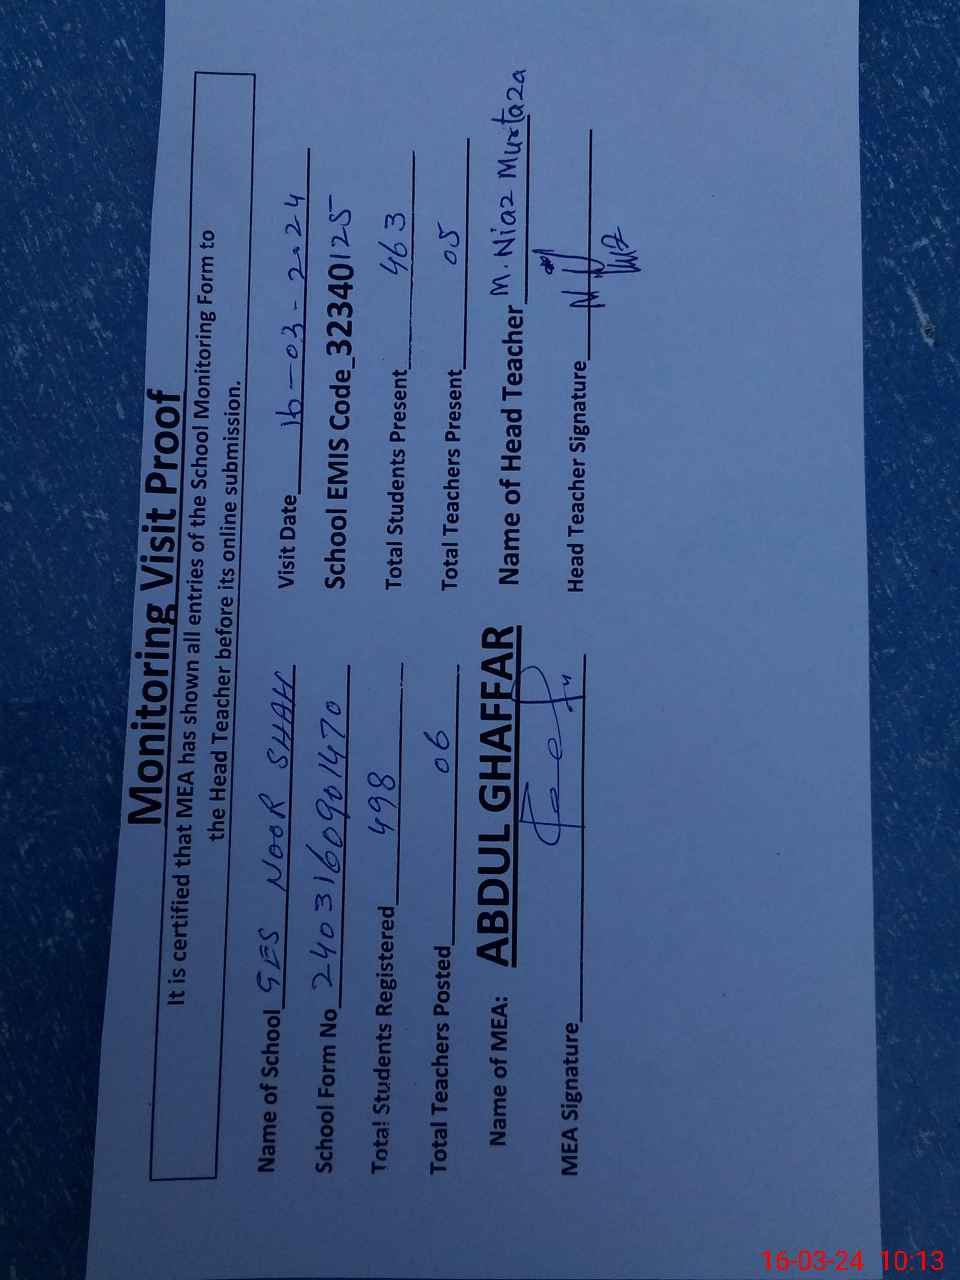 Monitoring Visit Proof
It is certified that MEA has shown all entries of the School Monitoring Form to
the Head Teacher before its online submission.
Name of School GES NOOR SHAH Visit Date 16-03-2024
School Form No 2403160901470 School EMIS Code_32340125
Total Students Registered 498 Total Students Present 463
Total Teachers Posted 06 Total Teachers Present 05
Name of MEA: ABDUL GHAFFAR Name of Head Teacher M. Niaz Murtaza
MEA Signature Head Teacher Signature
16-03-24 10:13